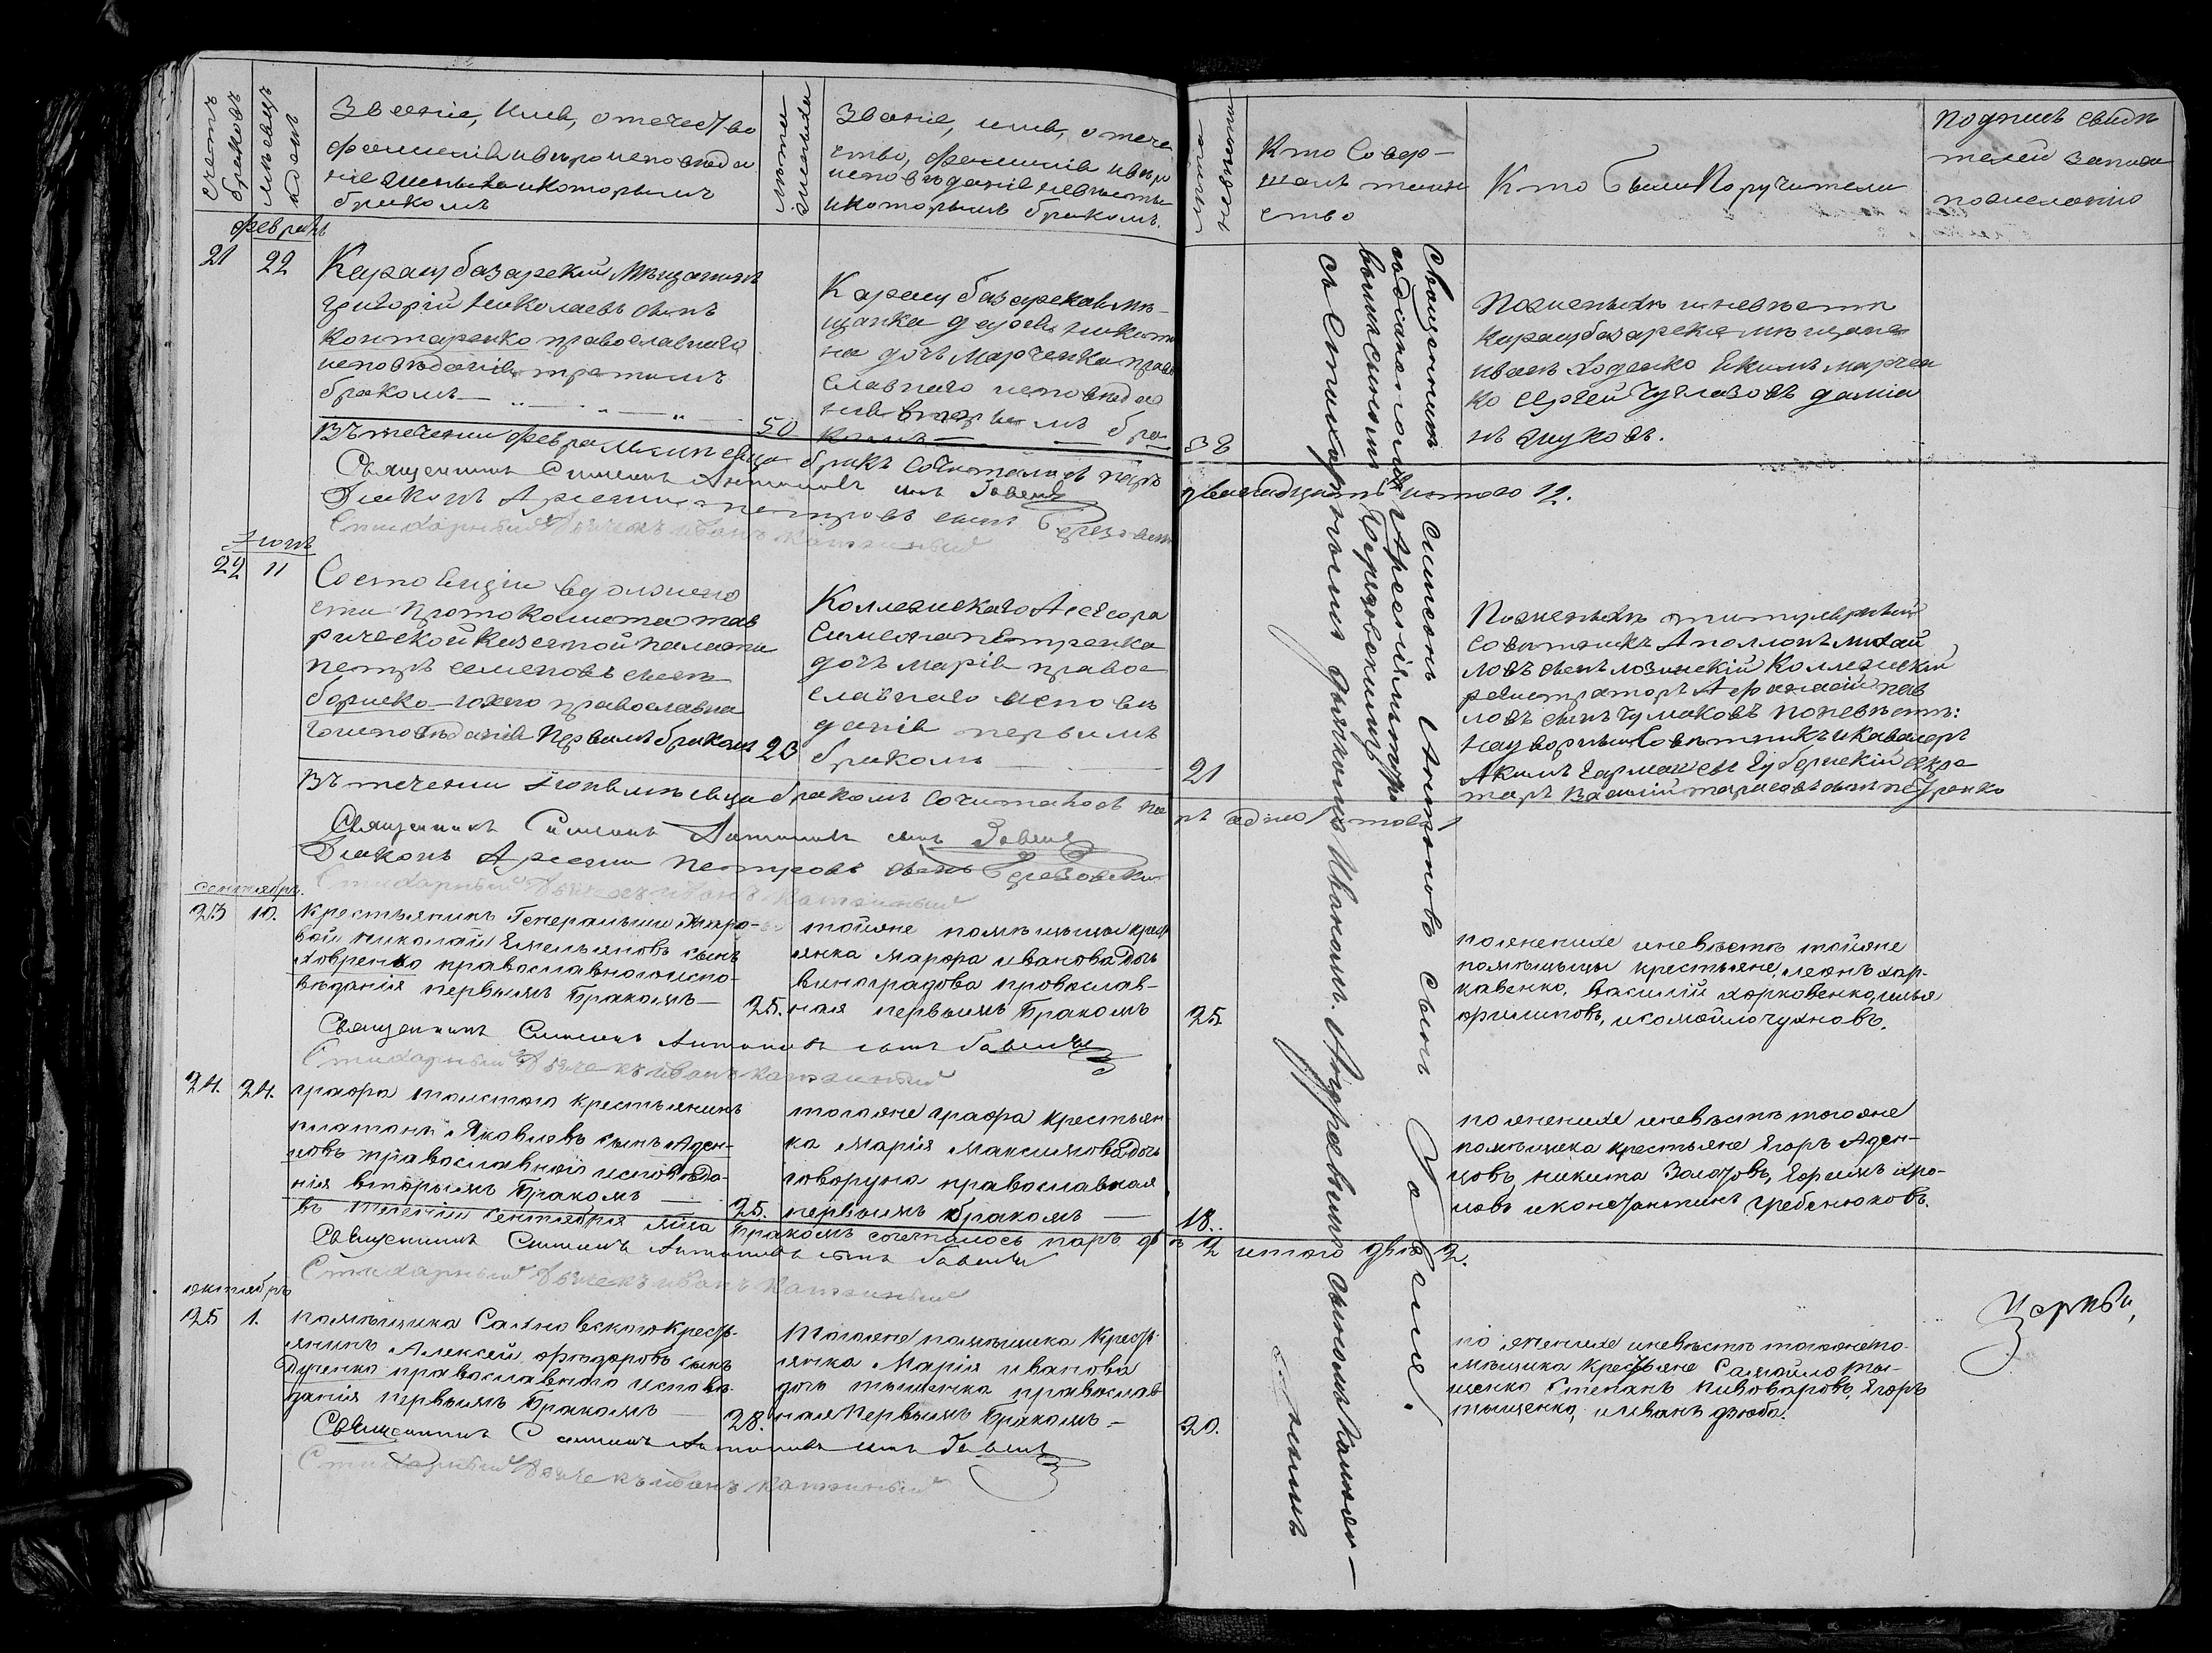 счетъ браковъ
мѣсяцъ и день
Званіе, имя, отечество
фамилія и вѣроисповеда
ніе жениха и которымъ
бракомъ
лѣта жениха
Званіе, имя, отече
ство, фамилія и вѣро
исповѣданіе невѣсты
и которымъ бракомъ.
лѣта невѣсты
Кто совер-
шалъ таин
ство
Кто были Поручители
подпись свидѣ
телей записи
по желанію
февраль
21 22
Карасубазарскій Мѣщанинъ
Григорій Николаевъ сынъ
Контаренко православнаго
исповѣданія третимъ
бракомъ
50
Карасубазарская мѣ-
щанка Дарья Никити
на дочь Марченкова право
славнаго исповѣда
нія вторымъ бра
комъ
38
По жениху и невѣсте
Карасубазарские мѣщане
Иванъ Ходенко Екимъ Марчен
ко Сергей Чуглазовъ Даміа
нъ Жуковъ.
Въ течении февраля месяца бракъ сочиталися паръ двенадцать итого 12.
Священникъ Симеонъ Антоновъ сынъ Гавеля
Диаконъ Арсении Петровъ сынъ Березовски
Стихарный Дьячекъ Иванъ Катжиный
Іюнь
22 11
Состоящій в должно
сти Протоколиста тав
рической Казенной палаты
Петръ Семеновъ сынъ
Бориско-Гожео православна
го исповѣданія Первымъ бракомъ
23
Коллежскаго Асесора
Симеона Петренка
дочь Марія право
славнаго исповѣ
данія первымъ
бракомъ
21
По жениху титулярный
советникъ Аполлонъ Михай
ловъ сынъ Лозинскій Коллежскій
регистраторъ Афанасий Пав
ловъ сынъ Чумаковъ по невѣсте:
Надворный Советникъ и кавалеръ
Акимъ Гармаш сы Губернскій секре
таръ Василий Тарасовъ сынъ Петренко
Въ течении Іюня месяца бракомъ сочиталось паръ одно итого 1
Священникъ Симеонъ Антоновъ сынъ Гавеля
Диаконъ Арсении Петровъ сынъ Березовски
Стихарный Дьячекъ Иванъ Катжиный
сентябрь.
23 10.
крестьянинъ Генеральши
вой Николай Емельяновъ сынъ
Ховренко православного испо-
вѣданія первымъ Бракомъ
25.
тойже помѣщицы крест
янка Марфа Иванова дочь
Виноградова православ-
ная первымъ Бракомъ
25
по женихе и невѣсте тойже
помѣщицы крестьяне, Леонъ Хар-
кавенко, Василій Харковенко, Илья
Филиповъ, и Сомойло Чухновъ.
Священникъ Симеонъ Антоновъ сынъ Гавеля
Стихарный Дьячекъ Иванъ Катжиный
24. 24.
графа толстого крестьянинъ
Платонъ Яковлевъ сынъ Аден-
цовъ православного исповѣда-
нія вторымъ Бракомъ
25.
тогоже графа крестьян
ка Марія Максимова дочь
Говоруна православная
первымъ бракомъ
18.
по женихе и невѣсте тогоже
помѣщика крестьяне Егоръ Аден-
цовъ, Никита Золотовъ, Ефимъ хро-
новъ и Констянтинъ Гребенюковъ.
в Течении Сентября мца Бракомъ сочеталось паръ двѣ 2 итого двѣ 2.
Священникъ Симеонъ Антоновъ сынъ Гавеля
Стихарный Дьячекъ Иванъ Катжиный
октябрь
25 1.
помѣщика крест-
янинъ Алексей Фѣдоровъ сынъ
Дуденко православного исповѣ
данія первымъ Бракомъ
28.
Тогоже помѣщика Крест-
янка Марія Иванова
дочь Тыщенка православ
ная Первымъ Бракомъ
20.
по женихе и невѣсте тогоже по-
мѣщика Крестьяне Самойло Ты-
щенко Степанъ Пивоваровъ, Егоръ
Тыщенко, и Иванъ Дзюба.
Священникъ Симеонъ Антоновъ сынъ Гавеля
Стихарный Дьячекъ Иванъ Катжиный
Священникъ Симеонъ Антоновъ сынъ Гавеля.
съ діакономъ Арсеніемъ Петро
вымъ сыномъ Березовскимъ
съ Стихарнымъ дьячкомъ Иваномъ Андреевымъ сыномъ
Церкви,